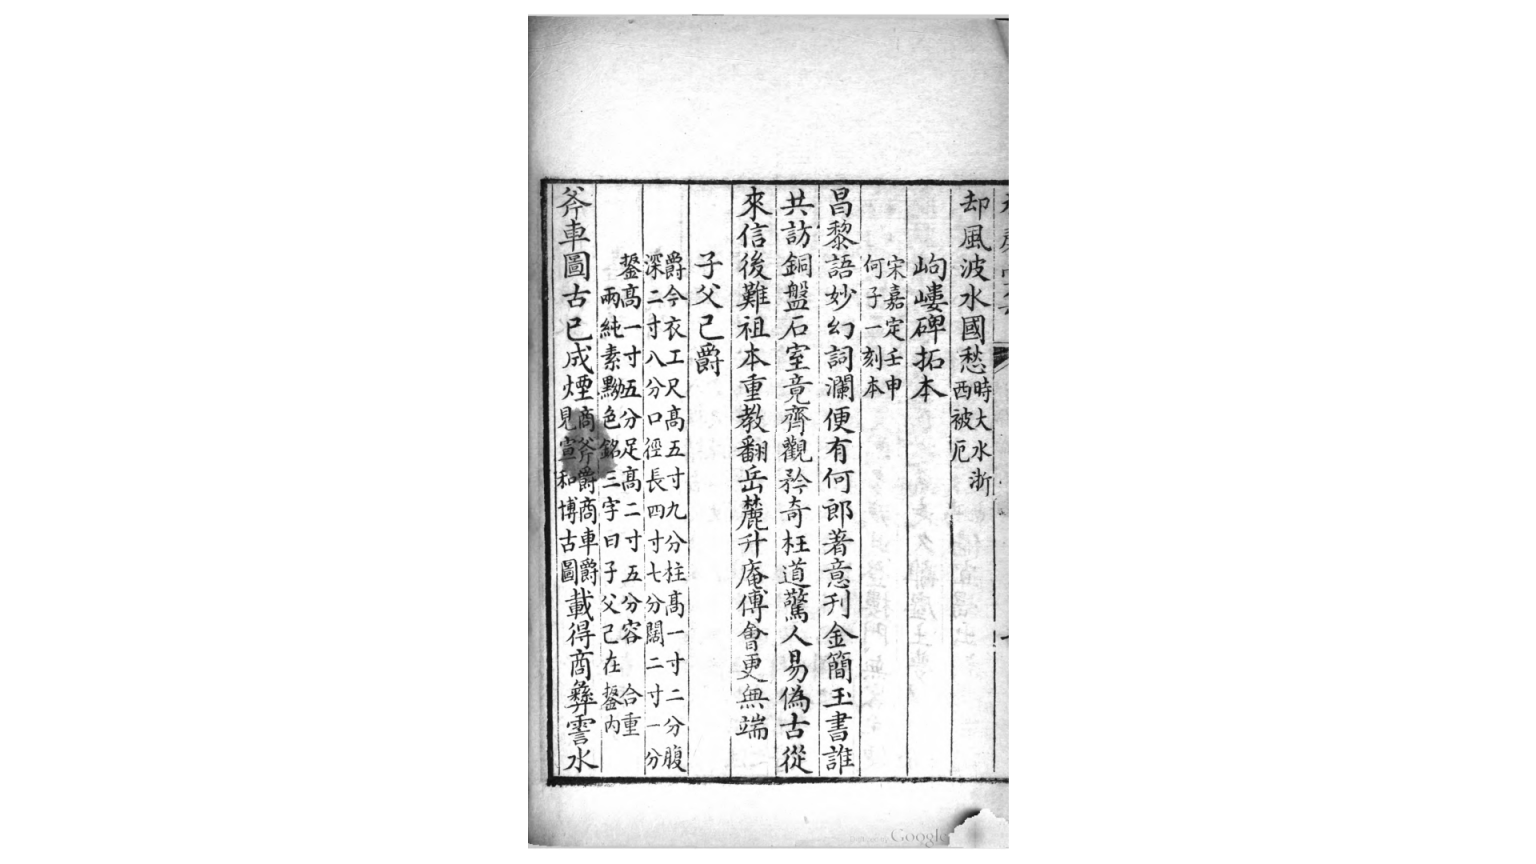 却風波水國愁時大水浙西被厄
岣嶁碑拓本
宋嘉定壬申何子一刻本
昌黎語妙幻詞瀾便有何郎著意刊金簡玉書誰
共訪銅盤石室竟齊觀矜奇枉道驚人易偽古從
來信後難祖本重教翻岳麓升庵傅會更無端
子父己爵
爵今衣工尺高五寸九分柱高一寸二分腹
深二寸八分口徑長四寸七分闊二寸一分
鋬高一寸五分足高二寸五分容 合重
兩純素黝色銘三字曰子父己在鋬內
斧車圖古已成煙商斧爵商車爵見宣和博古圖載得商彝霅水
Google